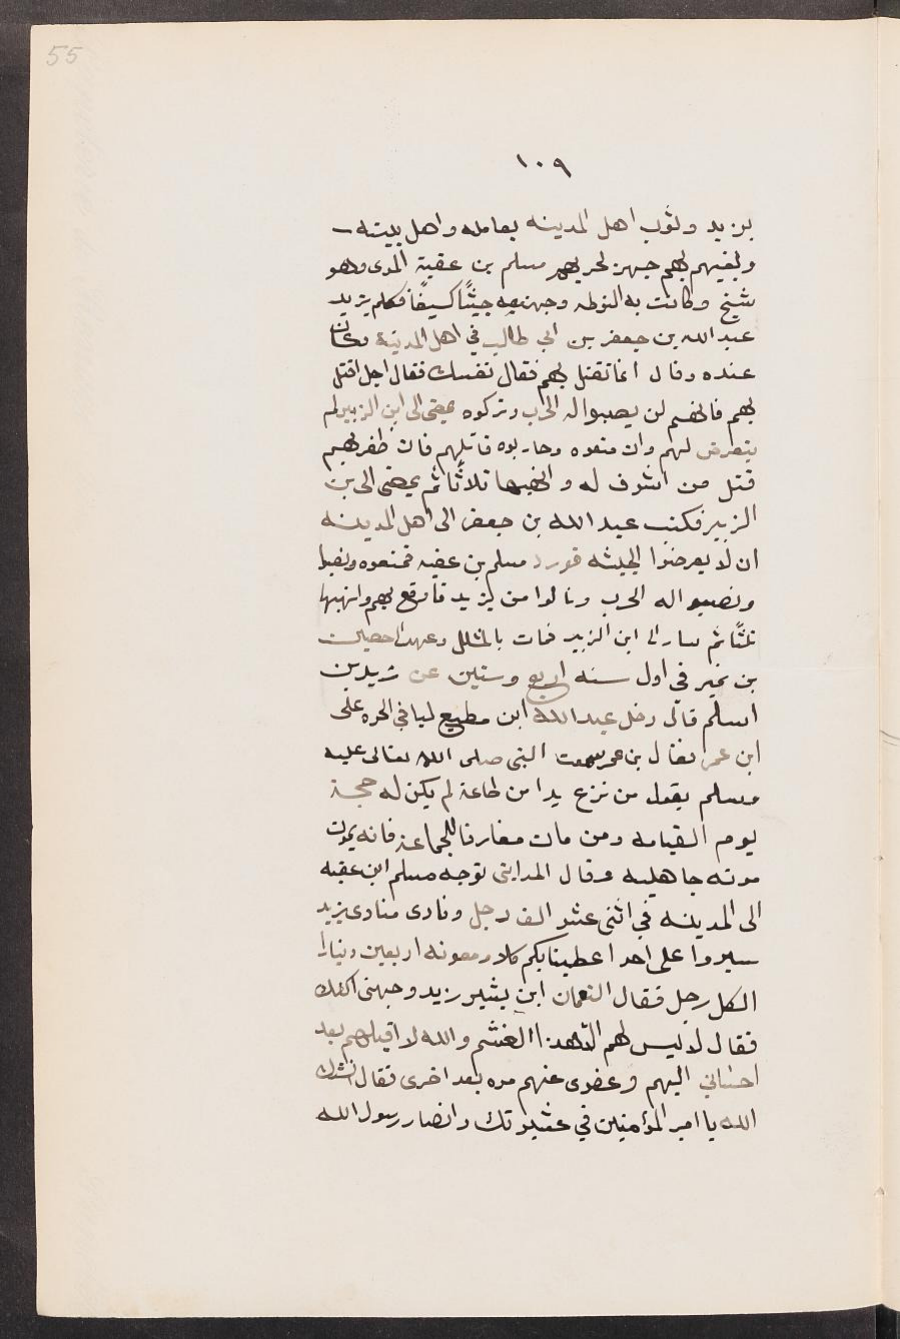 55
١٠٩
بزيد وثوب اهل المدينه بعامله واهل بيته
ونفيهم لهم جهز لحربهم مسلم بن عقبة المرى وهو
شيخ وكانت به النوطه وجهز معه جيشًا كسيفًا فكلم يزيد
عبد الله بن جعفر بن ابى طالب في اهل المدينة وكان
عنده وقال انما تقتل بهم فقال نفسك فقال اجل اقتل
بهم فانهم لن يصبوا له الحرب وتركوه يمضى الى ابن الزبير لم
يتعرض لهم وان منعوه وحاربوه قاتلهم فان ظفر بهم
قتل من اشرف له وانهبها ثلاثًا ثم يمضى الى بن
الزبير فكتب عبد الله بن جعفر الى اهل المدينه
ان لا يعرضوا لجيشه فورد مسلم بن عقبه فمنعوه ونصبوا
ونصبوا له الحرب ونالوا من يزيد فاوقع بهم وانهبها
ثلثًا ثم سار الى ابن الزبير فمات بالمشلل وعهد الى حصين
بن نمير في اول سنه اربع وستين عن زيد بن
اسلم قال دخل عبد الله ابن مطيع ليا في الحره على
ابن عمر فقال بن عمر سمعت النبى صلى الله تعالى عليه
وسلم يقول من نزع يدا من طاعة لم يكن له حجة
يوم القيامه ومن مات مفارقا للجماعة فانه يموت
موته جاهليه وقال المدائنى توجه مسلم ابن عقبه
الى المدينه في اثنى عشر الف رجل ونادى منادى يزيد
سيروا على اخذ اعطياتكم كلا ومعونه اربعين دينارا
لكل رجل فقال النعمان ابن بشير يزيد وجهنى اكفك
فقال لا ليس لهم الا هذا الغشم والله لا اقيلهم بعد
احسانى اليهم وعفوى عنهم مره بعد اخرى فقال انشدك
الله يا امير المؤمنين في عشيرتك وانصار رسول الله